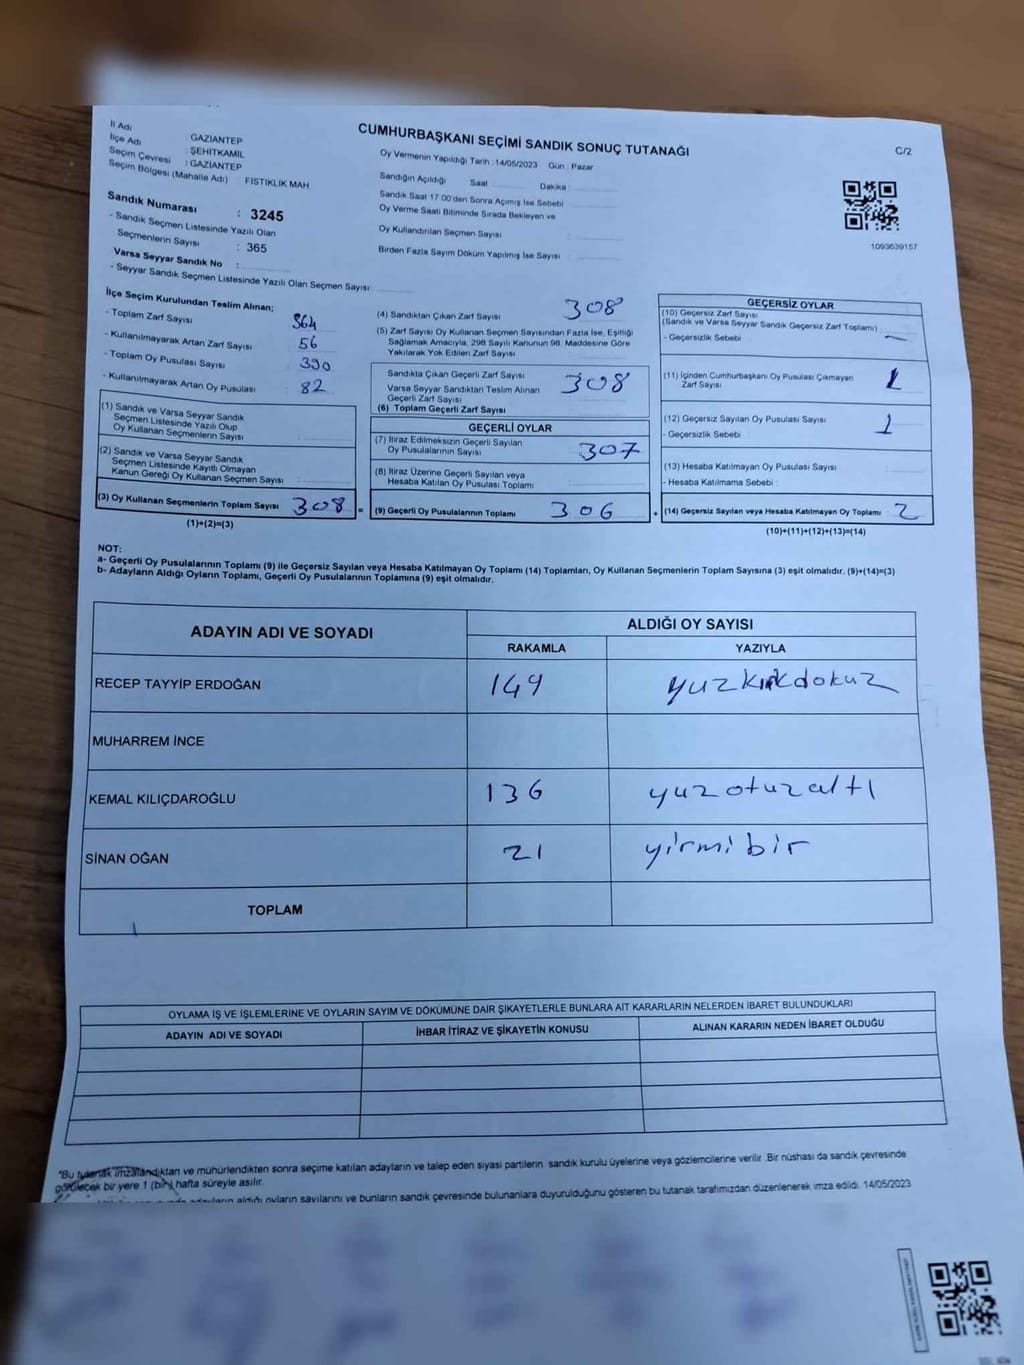 CUMHURBAŞKANI SEÇİMİ SANDIK SONUÇ TUTANAĞI
C/2
İl Adı : GAZİANTEP
İlçe Adı : ŞEHİTKAMİL
Seçim Çevresi : GAZİANTEP
Seçim Bölgesi (Mahalle Adı) FISTIKLIK MAH
Sandık Numarası : 3245
- Sandık Seçmen Listesinde Yazılı Olan
Seçmenlerin Sayısı : 365
Varsa Seyyar Sandık No :
- Seyyar Sandık Seçmen Listesinde Yazılı Olan Seçmen Sayısı:
Oy Vermenin Yapıldığı Tarih : 14/05/2023 Gün : Pazar
Sandığın Açıldığı Saat Dakika :
Sandık Saat 17.00'den Sonra Açımış İse Sebebi
Oy Verme Saati Bitiminde Sırada Bekleyen ve
Oy Kullandırılan Seçmen Sayısı
Birden Fazla Sayım Döküm Yapılmış İse Sayısı
1093639157
İlçe Seçim Kurulundan Teslim Alınan;
- Toplam Zarf Sayısı 364
- Kullanılmayarak Artan Zarf Sayısı 56
- Toplam Oy Pusulası Sayısı 390
- Kullanılmayarak Artan Oy Pusulası 82
(1) Sandık ve Varsa Seyyar Sandık
Seçmen Listesinde Yazılı Olup
Oy Kullanan Seçmenlerin Sayısı
(2) Sandık ve Varsa Seyyar Sandık
Seçmen Listesinde Kayıtlı Olmayan
Kanun Gereği Oy Kullanan Seçmen Sayısı
(3) Oy Kullanan Seçmenlerin Toplam Sayısı 308 =
(1)+(2)=(3)
(4) Sandıktan Çıkan Zarf Sayısı 308
(5) Zarf Sayısı Oy Kullanan Seçmen Sayısından Fazla İse, Eşitliği
Sağlamak Amacıyla, 298 Sayılı Kanunun 98. Maddesine Göre
Yakılarak Yok Edilen Zarf Sayısı
Sandıkta Çıkan Geçerli Zarf Sayısı
Varsa Seyyar Sandıktan Teslim Alınan 308
Geçerli Zarf Sayısı
(6) Toplam Geçerli Zarf Sayısı
GEÇERLİ OYLAR
(7) İtiraz Edilmeksizin Geçerli Sayılan
Oy Pusulalarının Sayısı 307
(8) İtiraz Üzerine Geçerli Sayılan veya
Hesaba Katılan Oy Pusulası Toplamı
(9) Geçerli Oy Pusulalarının Toplamı 306 +
GEÇERSİZ OYLAR
(10) Geçersiz Zarf Sayısı
(Sandık ve Varsa Seyyar Sandık Geçersiz Zarf Toplamı) :
- Geçersizlik Sebebi : —
(11) İçinden Cumhurbaşkanı Oy Pusulası Çıkmayan
Zarf Sayısı 1
(12) Geçersiz Sayılan Oy Pusulası Sayısı 1
- Geçersizlik Sebebi
(13) Hesaba Katılmayan Oy Pusulası Sayısı
- Hesaba Katılmama Sebebi :
(14) Geçersiz Sayılan veya Hesaba Katılmayan Oy Toplamı : 2
(10)+(11)+(12)+(13)=(14)
NOT:
a- Geçerli Oy Pusulalarının Toplamı (9) ile Geçersiz Sayılan veya Hesaba Katılmayan Oy Toplamı (14) Toplamları, Oy Kullanan Seçmenlerin Toplam Sayısına (3) eşit olmalıdır. (9)+(14)=(3)
b- Adayların Aldığı Oyların Toplamı, Geçerli Oy Pusulalarının Toplamına (9) eşit olmalıdır.
ADAYIN ADI VE SOYADI ALDIĞI OY SAYISI
RAKAMLA YAZIYLA
RECEP TAYYİP ERDOĞAN 149 yuzkırkdokuz
MUHARREM İNCE
KEMAL KILIÇDAROĞLU 136 yuzotuzaltı
SİNAN OĞAN 21 yirmibir
TOPLAM
OYLAMA İŞ VE İŞLEMLERİNE VE OYLARIN SAYIM VE DÖKÜMÜNE DAİR ŞİKAYETLERLE BUNLARA AİT KARARLARIN NELERDEN İBARET BULUNDUKLARI
ADAYIN ADI VE SOYADI İHBAR İTİRAZ VE ŞİKAYETİN KONUSU ALINAN KARARIN NEDEN İBARET OLDUĞU
"Bu tutanak imzalandıktan ve mühürlendikten sonra seçime katılan adayların ve talep eden siyasi partilerin sandık kurulu üyelerine veya gözlemcilerine verilir .Bir nüshası da sandık çevresinde
görülecek bir yere 1 (bir) hafta süreyle asılır.
adayların aldığı oyların sayılarını ve bunların sandık çevresinde bulunanlara duyurulduğunu gösteren bu tutanak tarafımızdan düzenlenerek imza edildi. 14/05/2023